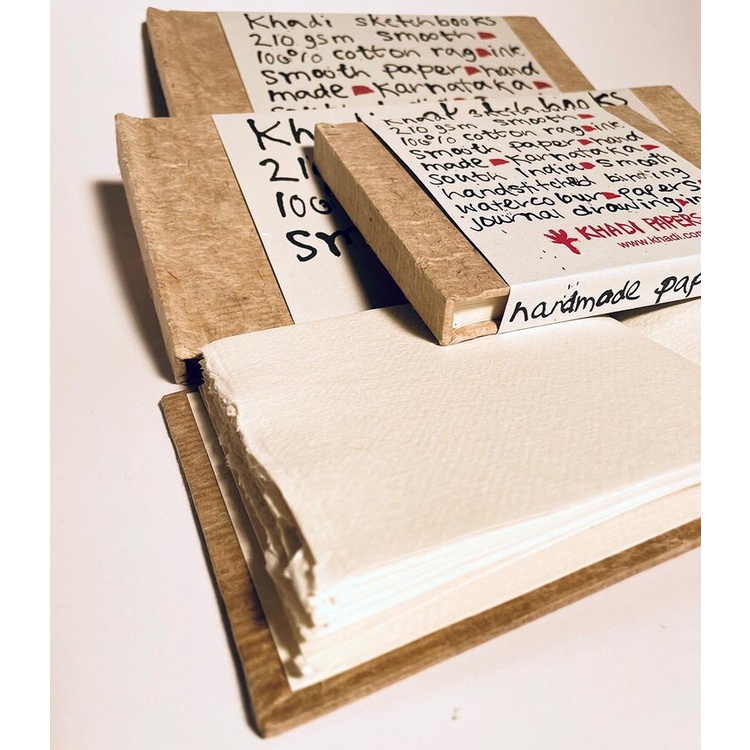 Khadi sketchbooks
210 gsm smooth
100% cotton rag ink
smooth paper hand
made Karnataka
Kh
 books
21
100
sm
Khadi sketchbooks
210 gsm smooth
100% cotton rag ink
smooth paper hand
made Karnataka
South India smooth
handstitched binting
watercolour papers
journal drawing
KHADI PAPERS
www.khadi.com
handmade pap